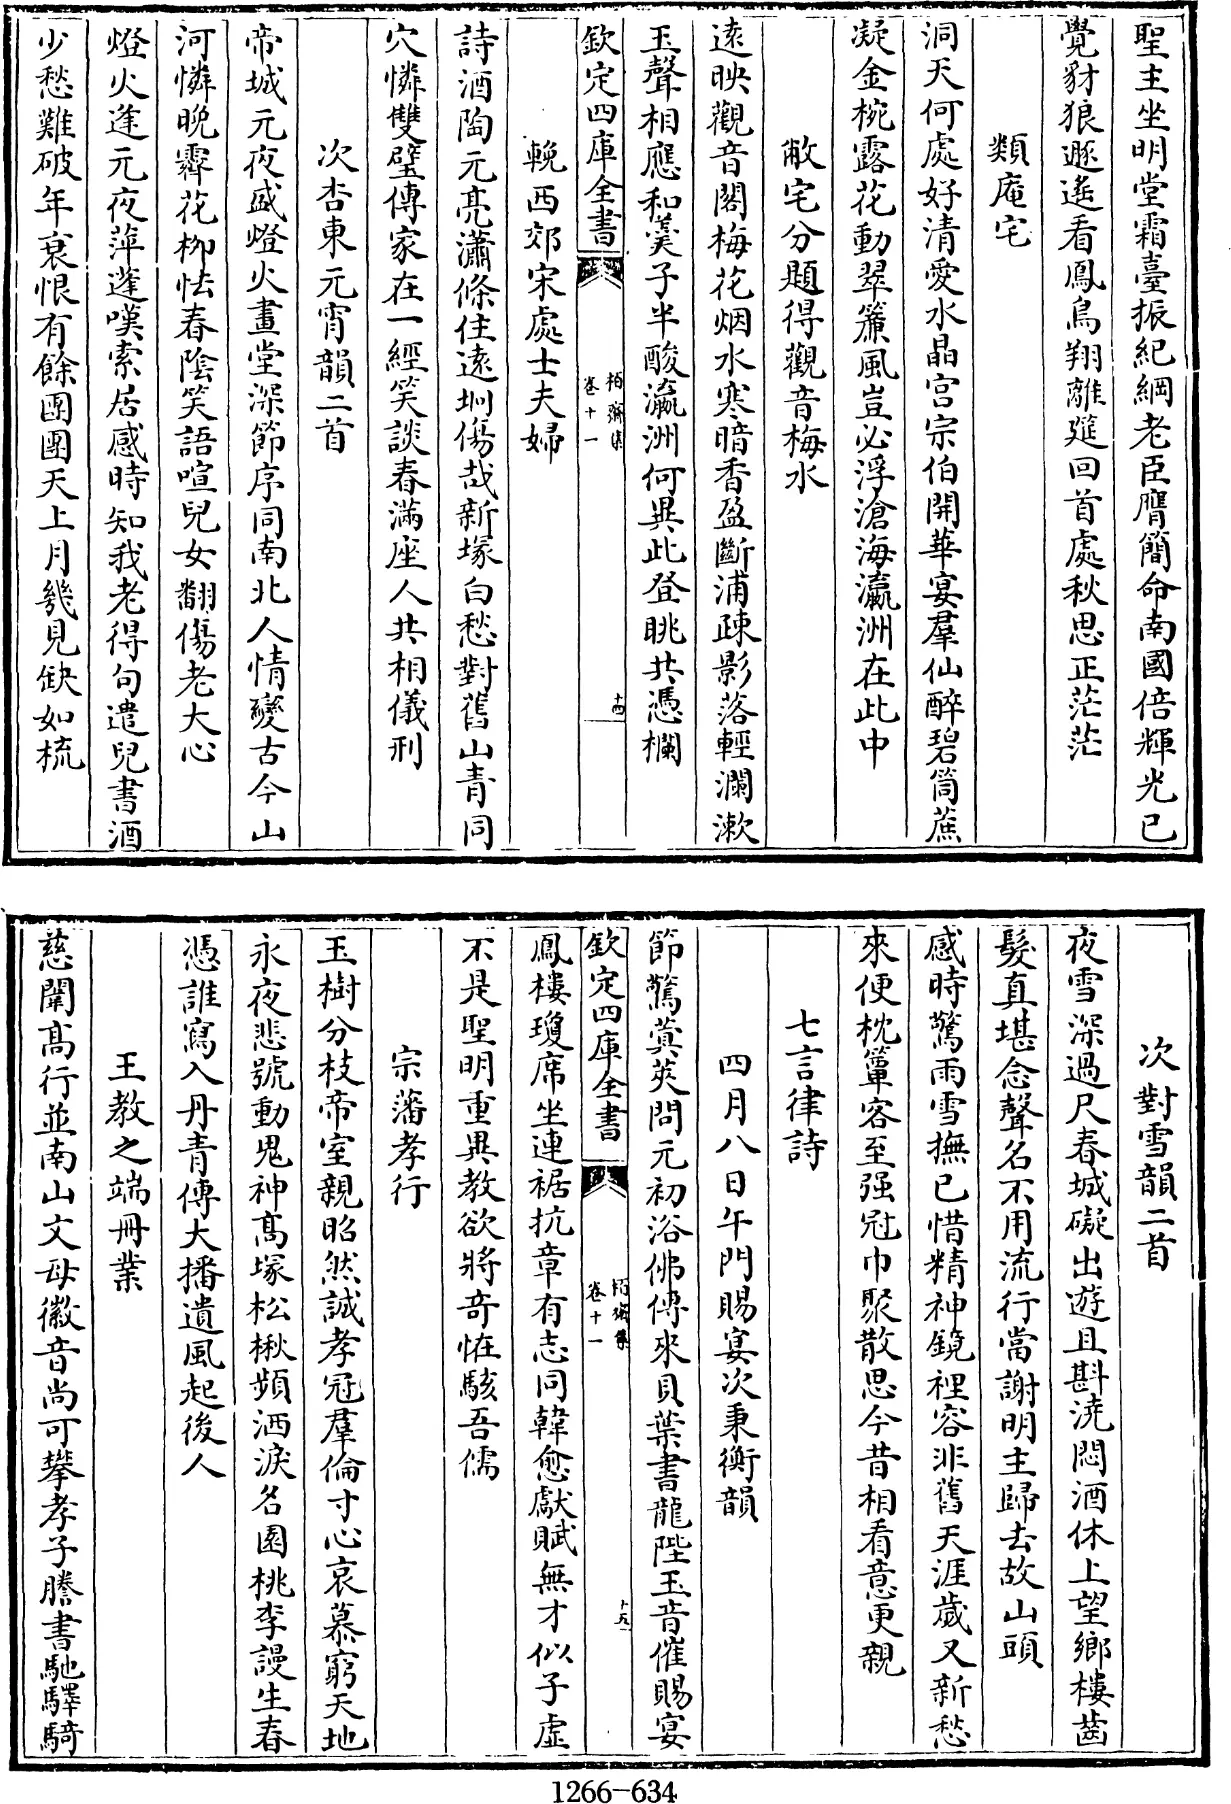 聖主坐明堂霜臺振紀綱老臣膺簡命南國倍輝光已
覺豺狼遯遙看鳳鳥翔離筵回首處秋思正茫茫
類庵宅
洞天何處好清愛水晶宫宗伯開華宴羣仙醉碧筒蔗
凝金椀露花動翠簾風豈必浮滄海瀛洲在此中
敝宅分題得觀音梅水
遠映觀音閣梅花烟水寒暗香盈斷浦疎影落輕瀾漱
玉聲相應和羮子半酸瀛洲何異此登眺共憑欄
欽定四庫全書
栢齋集
卷十一
十四
輓西郊宋處士夫婦
詩酒陶元亮瀟條住遠坰傷哉新塚白愁對舊山青同
穴憐雙璧傳家在一經笑談春滿座人共相儀刑
次杏東元宵韻二首
帝城元夜盛燈火畫堂深節序同南北人情變古今山
河憐晚霽花栁怯春陰笑語喧兒女翻傷老大心
燈火逢元夜萍蓬嘆索居感時知我老得句遣兒書酒
少愁難破年衰恨有餘團團天上月幾見缺如梳
次對雪韻二首
夜雪深過尺春城礙出遊且斟澆悶酒休上望鄉樓齒
髮真堪念聲名不用流行當謝明主歸去故山頭
感時驚雨雪撫已惜精神鏡裡容非舊天涯歲又新愁
來便枕簟客至强冠巾聚散思今昔相看意更親
七言律詩
四月八日午門賜宴次秉衡韻
節驚蓂莢問元初浴佛傳來貝葉書龍陛玉音催賜宴
欽定四庫全書
栢齋集
卷十一
十五
鳳樓瓊席坐連裾抗章有志同韓愈獻賦無才似子虛
不是聖明重異教欲將奇怪駭吾儒
宗藩孝行
玉樹分枝帝室親昭然誠孝冠羣倫寸心哀慕窮天地
永夜悲號動鬼神髙塚松楸頻洒淚名園桃李謾生春
憑誰寫入丹青傳大播遺風起後人
王教之端冊業
慈闈髙行並南山文母徽音尚可攀孝子謄書馳驛騎
1266-634